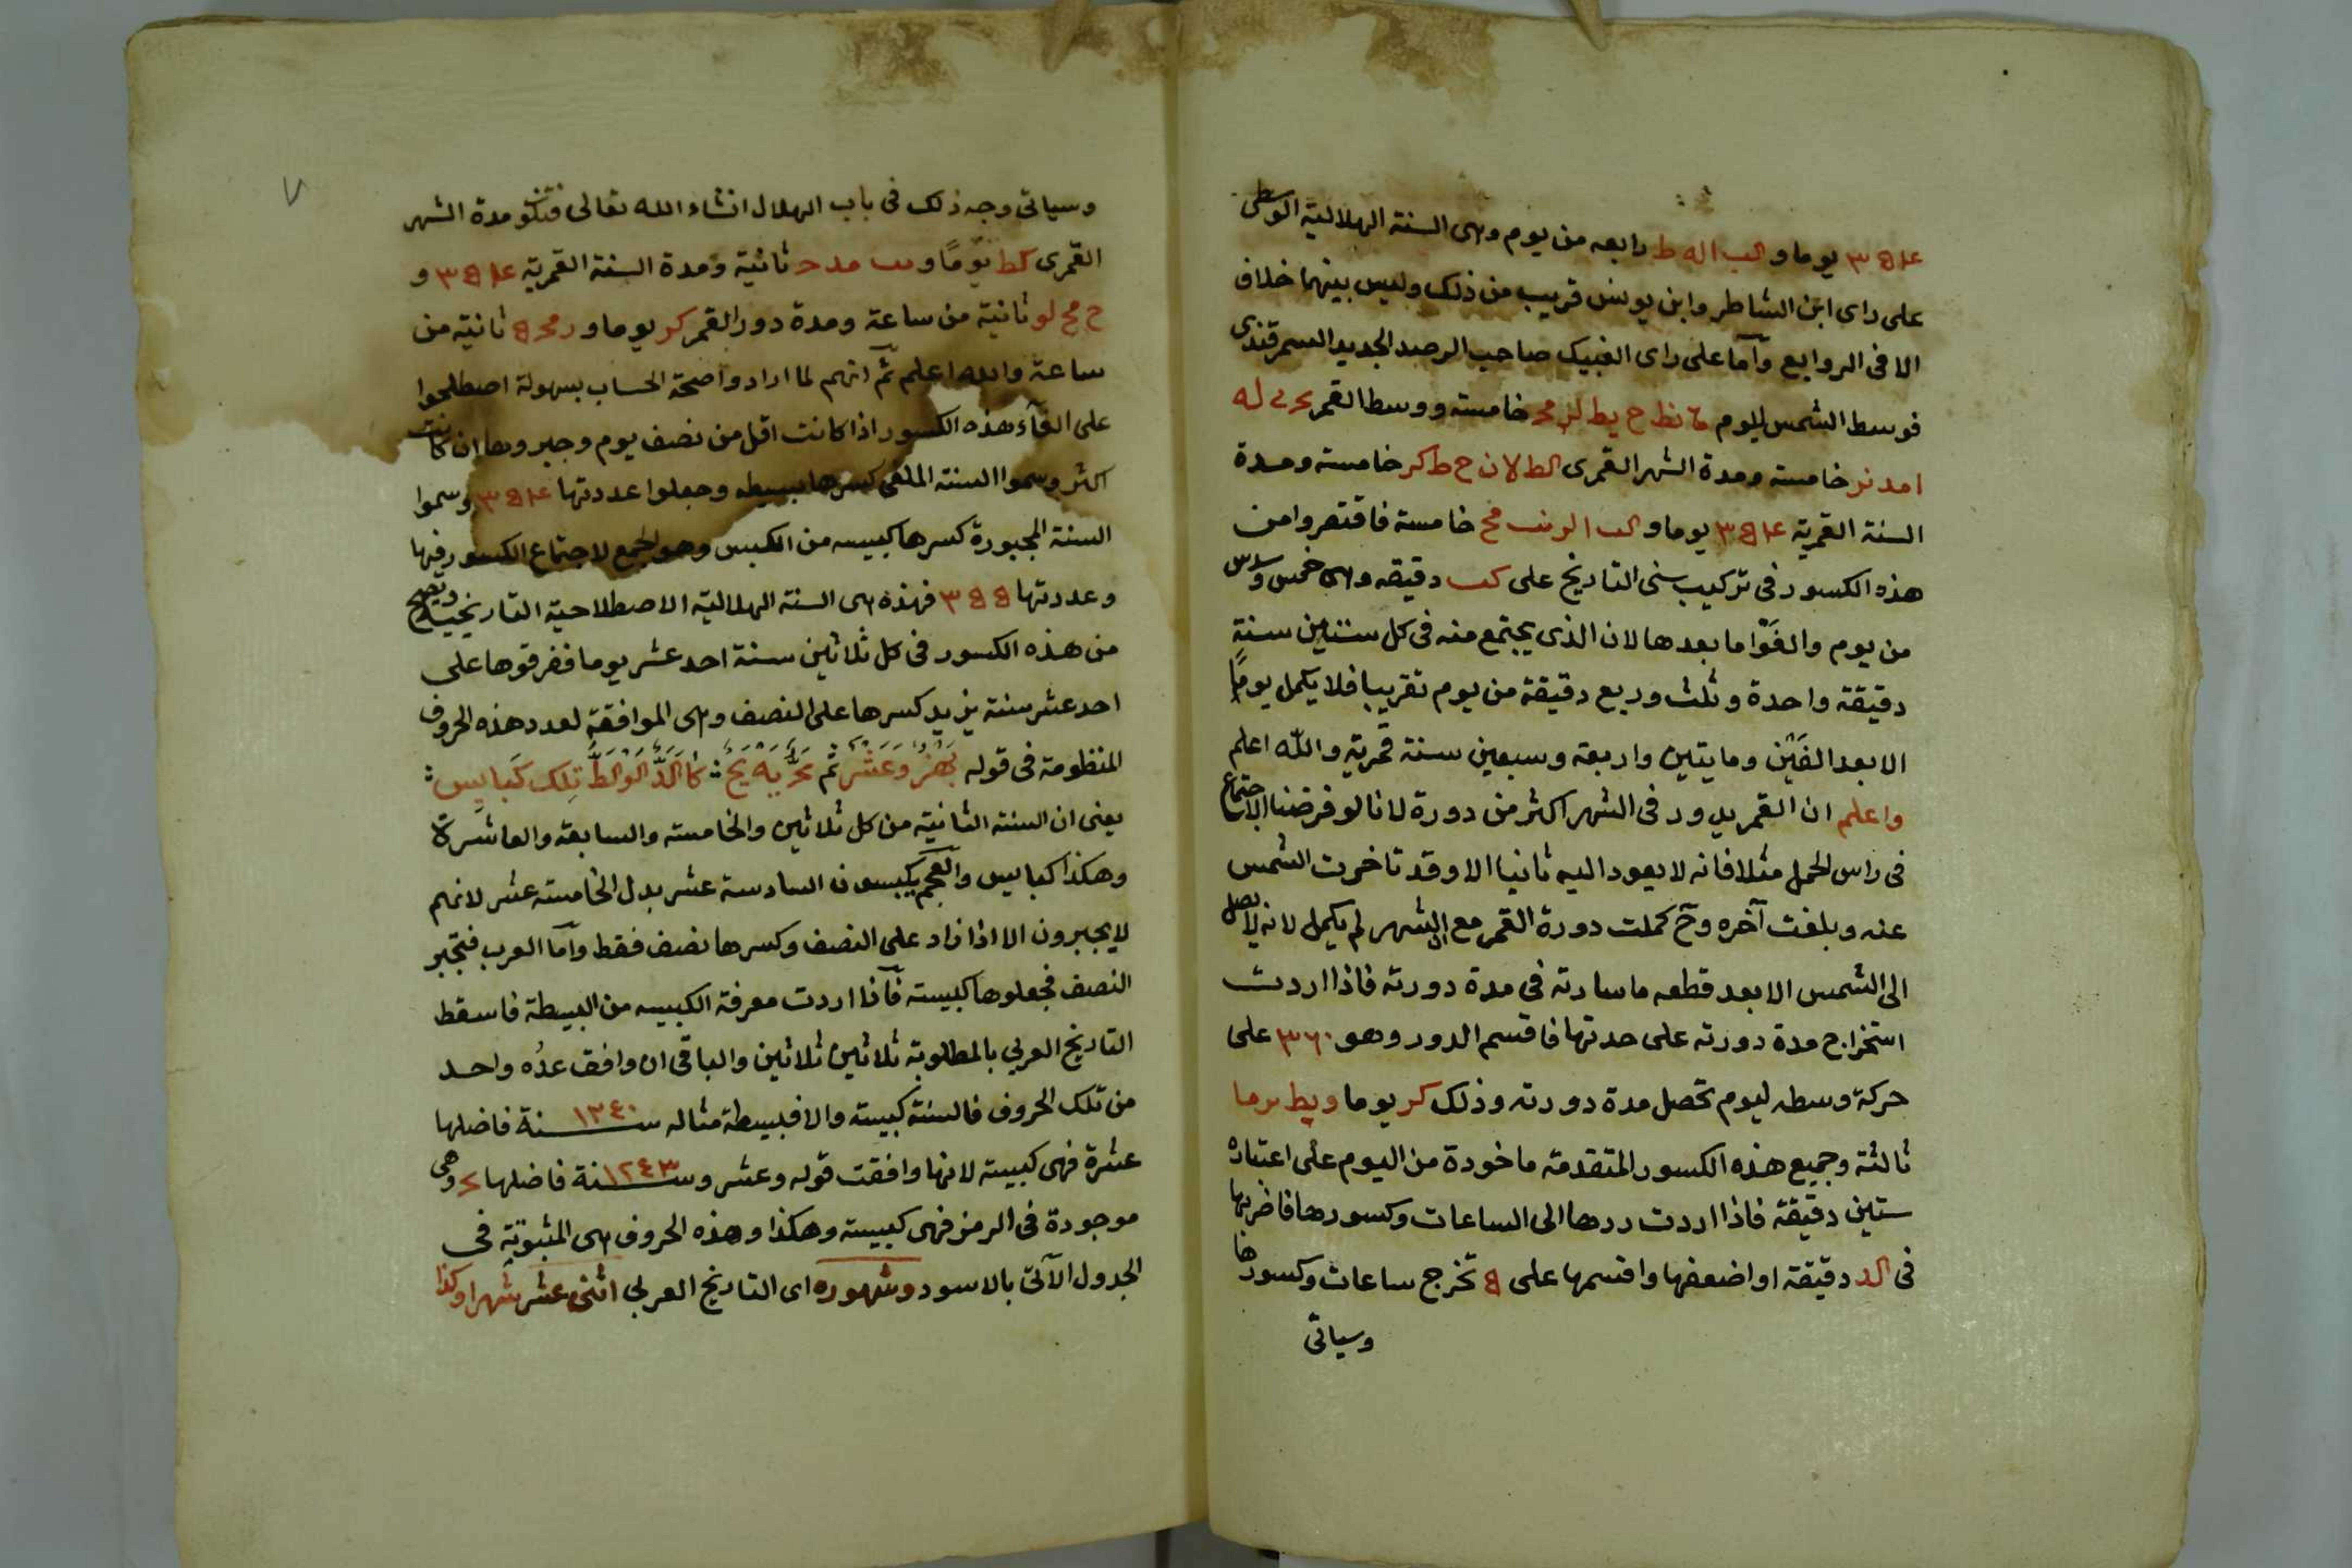 ٣٥٤ يوما و الب اله ط رابعه من يوم وهى السنة الهلالية الوسطى
على راى ابن الشاطر وابن يونس قريب من ذلك وليس بينهما خلاف
الا فى الروابع وآما على راى الغبيك صاحب الرصد الجديد السمرقندى
فوسط الشمس لليوم نط ح يط لز مح خامسته ووسط القمر له
امد نر خامسته ومدة الشهر القمرى الط لا ن ح ط كر خامسته ومدة
السنة القمرية ٣٥٤ يوما و الب ا مح خامسة فاقتصروا من
هذه الكسور فى تركيب سنى التاريخ على كب دقيقه وهى خمس وسدس
من يوم والغَوْا ما بعدها لان الذى يجتمع منه فى كل ستين سنةٍ
دقيقة واحدة وثلث وربع دقيقة من يوم تقريبا فلا يكمل يومًا
الا بعد الفَيْن ومايتين واربعة وسبعين سنة قمرية والله اعلم
واعلم ان القمر يدور فى الشهر اكثر من دورة لانا لو فرضنا الاجتماع
فى راس الحمل مثلا فانه لا يعود اليه ثانيا الا وقد تاخرت الشمس
عنه وبلغت آخره وحَ كملت دورة القمر مع ان الشهر لم يكمل لانه لا يصل
الى الشمس الا بعد قطعه ما سارته فى مدة دورته فاذا اردت
استخراج مدة دورته على حدتها فاقسم الدور وهو ٣٦٠ على
حركة وسطه ليوم تحصل مدة دورته وذلك كز يوما ويط ما
ثالثة وجميع هذه الكسور المتقدمة ماخودة من اليوم على اعتباره
ستين دقيقة فاذا اردت ردها الى الساعات وكسورها فاضربها
فى الد دقيقة او اضعفها واقسمها على ٥ تخرج ساعات وكسورها
وسياتى
٧
وسياتى وجه ذلك فى باب الهلال انشاء الله تعالى فتكو مدة الشهر
القمرى كط يومًا و مد ح ثانية ومدة السنة القمرية ٣٥٤ و
ح مح لو ثانية من ساعة ومدة دور القمر كز يوما و ز مح ٥ ثانية من
ساعة والله اعلم ثم انهم لما ارادوا صحة الحساب بسهولة اصطلحوا
على الغآء هذه الكسور اذا كانت اقل من نصف يوم وجبروها ان كانت
اكثر وسموا السنة الملغى كسرها بسيطه وجعلوا عددتها ٣٥٤ وسموا
السنة المجبورة كسرها كبيسه من الكبس وهو الجمع لاجتماع الكسور فيها
وعددتها ٣٥٥ فهذه هى السنة الهلالية الاصطلاحية التاريخية ويصح
من هذه الكسور فى كل ثلاثين سنة احد عشر يوما ففرقوها على
احد عشر سنة يزيد كسرها على النصف وهى الموافقة لعدد هذه الحروف
المنظومة فى قوله بَهْزٌ وَعَشْرٌ ثم يَهٍ يَحٍ كا الدٌ الو الط تِلك كَبايِس
يعنى ان السنه الثانية من كل ثلاثين والخامسة والسابعة والعاشرة
وهكذا كبايس والعجم يكبسون السادسة عشر بدل الخامسة عشر لانهم
لا يجبرون الا اذا زاد على النصف وكسرها نصف فقط وآما العرب فتجبر
النصف فجعلوها كبيسته فآذا اردت معرفة الكبيسه من البسيطة فاسقط
التاريخ العربي بالمطلوبة ثلاثين ثلاثين والباقى ان وافق عدُه واحد
من تلك الحروف فالسنة كبيسته والا فبسيطة مثاله سنة ١٢٤٠ فاضلها
عشرة فهى كبيسته لانها وافقت قوله وعشر وسنة ١٢٤٣ فاضلها وهى
موجودة فى الرمز فهى كبيسته وهكذا وهذه الحروف هى المثبوتة فى
الجدول الآتى بالاسود وشهوره اى التاريخ العربي اثنى عشر شهرا وكذا